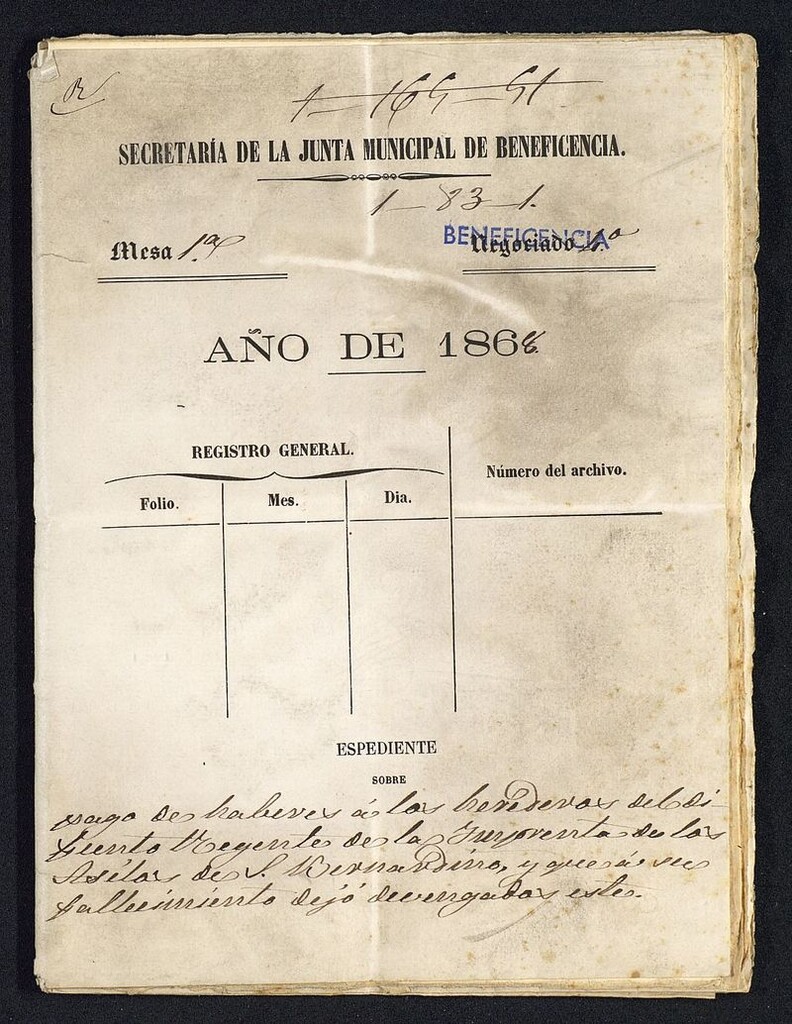 1-165-51
SECRETARÍA DE LA JUNTA MUNICIPAL DE BENEFICENCIA.
1-83-1.
BENEFICENCIA
Mesa 1.ª Negociado 1.º
AÑO DE 1868
REGISTRO GENERAL.
Número del archivo.
Folio. Mes. Dia.
ESPEDIENTE
SOBRE
pago de haberes á los herederos del di-
funto Regente de la Imprenta de los
Asilos de S. Bernardino, y que á su
fallecimiento dejó devengados este.